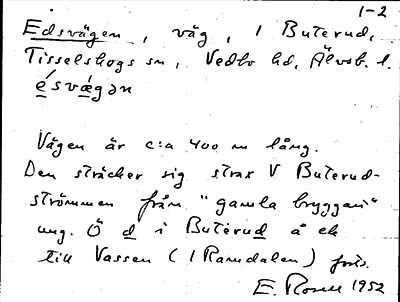 1-2
Edsvägen, väg, i Buterud,
Tisselskogs sn, Vedbo hd, Älvsb. l.
é̱svä́gən
Vägen är c:a 400 m lång.
Den sträcker sig strax V Buterud-
strömmen från "gamla bryggan"
ung. Ö d i Buterud å ek
till Vassen (i Ramdalen) forts.
E. Rosell 1952